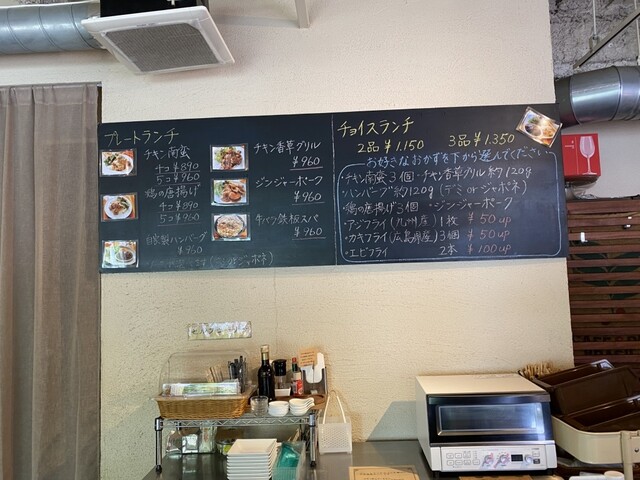 プレートランチ
チキン南蛮
4コ ¥890
5コ ¥960
鶏の唐揚げ
4コ ¥890
5コ ¥960
自家製ハンバーグ
¥960
チキン香草グリル
¥960
ジンジャーポーク
¥960
牛バラ鉄板スパ
¥960
チョイスランチ
2品 ¥1.150 3品 ¥1.350
お好きなおかずを下から選んでください
・チキン南蛮3個・チキン香草グリル約120g
・ハンバーグ約120g(デミorジャポネ)
・鶏の唐揚げ3個 ・ジンジャーポーク
・アジフライ(九州産) 1枚 ¥50up
・カキフライ(広島県産) 3個 ¥50up
・エビフライ 2本 ¥100up